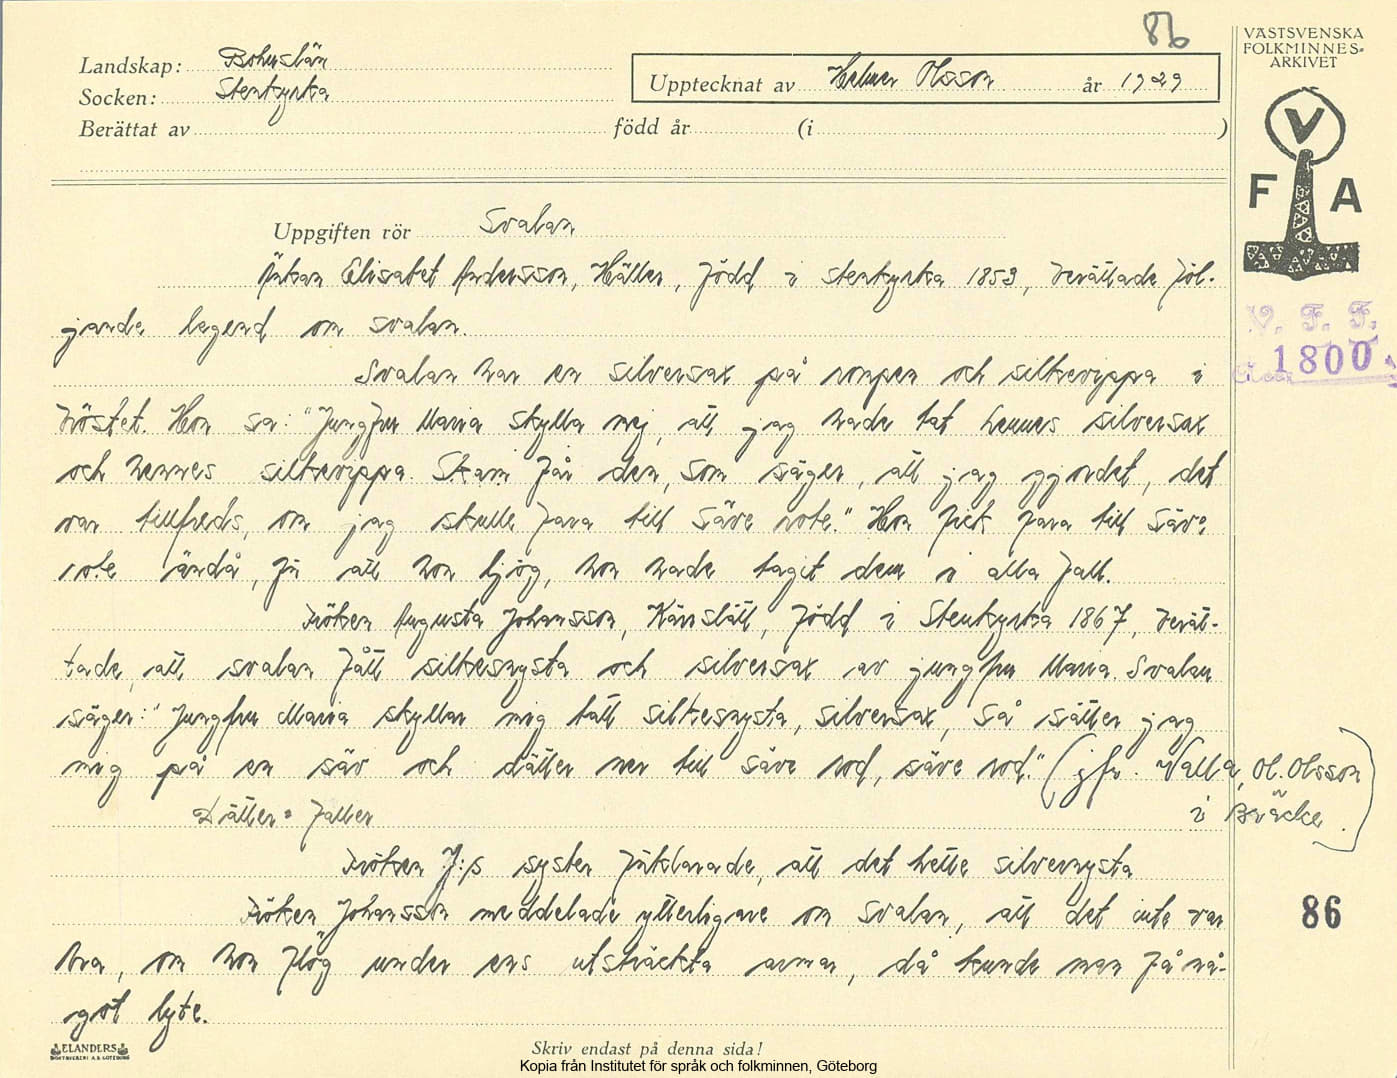 86
VÄSTSVENSKA
FOLKMINNES-
ARKIVET
Landskap: Bohuslän
Socken: Stenkyrka
Upptecknat av Helmer Olsson år 1929
Berättat av född år (i )
V
F A
Uppgiften rör Svalan
Änkan Elisabet Andersson, Häller, född i Stenkyrka 1853, berättade föl-
jande legend om svalan.
V. F. F.
1800
Svalan har en silversax på rumpen och silkevippa i
bröstet. Hon sa: "Jungfru Maria skylla mej, att jag hade tat hennes silversax
och hennes silkevippa. Skam får den, som säger, att jag gjordet, det
var tillfreds, om jag skulle fara till säve rote." Hon fick fara till säve
rote ändå, för att hon ljög, hon hade tagit dem i alla fall.
Fröken Augusta Johansson, Kärrslätt, född i Stenkyrka 1867, berät-
tade, att svalan fått silkesnysta och silversax av jungfru Maria. Svalan
säger: "Jungfru Maria skyllar mig tatt silkesnysta, silversax, så sätter jag
mig på en säv och dätter ner till säve rod, säve rod." (jfr. Valla, Ol. Olsson
Dätter = faller i Bräcke.)
Fröken J:s syster förklarade, att det hette silvernysta
Fröken Johansson meddelade ytterligare om svalan, att det inte var
bra, om hon flög under ens utsträckta armar, då kunde man få nå-
got lyte.
86
ELANDERS
BOKTRYCKERI A.B. GÖTEBORG
Skriv endast på denna sida!
Kopia från Institutet för språk och folkminnen, Göteborg